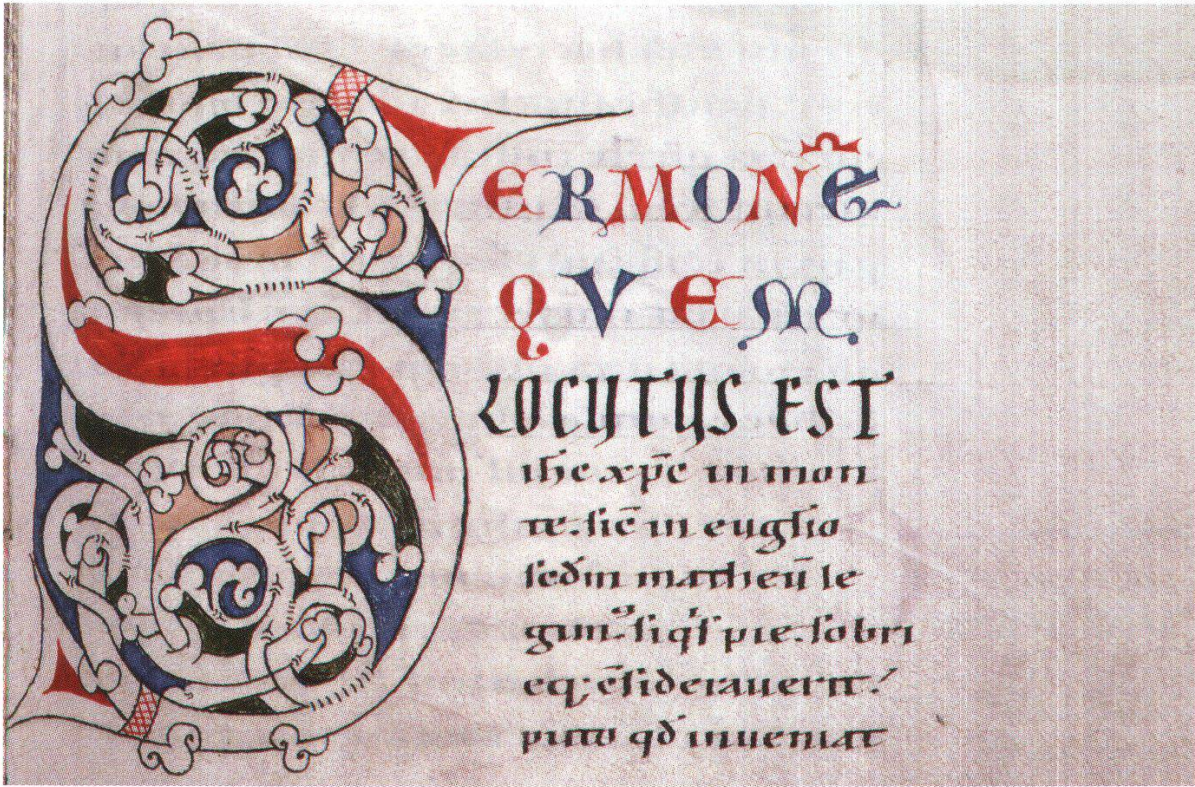 SERMONE̅
QVEM
LOCUTUS EST
ihc xp̄c in mon
te. sic̄ in euglio
scd̄m matheū le
gim⁹. siqͥs pie. sobri
eq; c̄siderauerit?
puto qd̄ inueniat